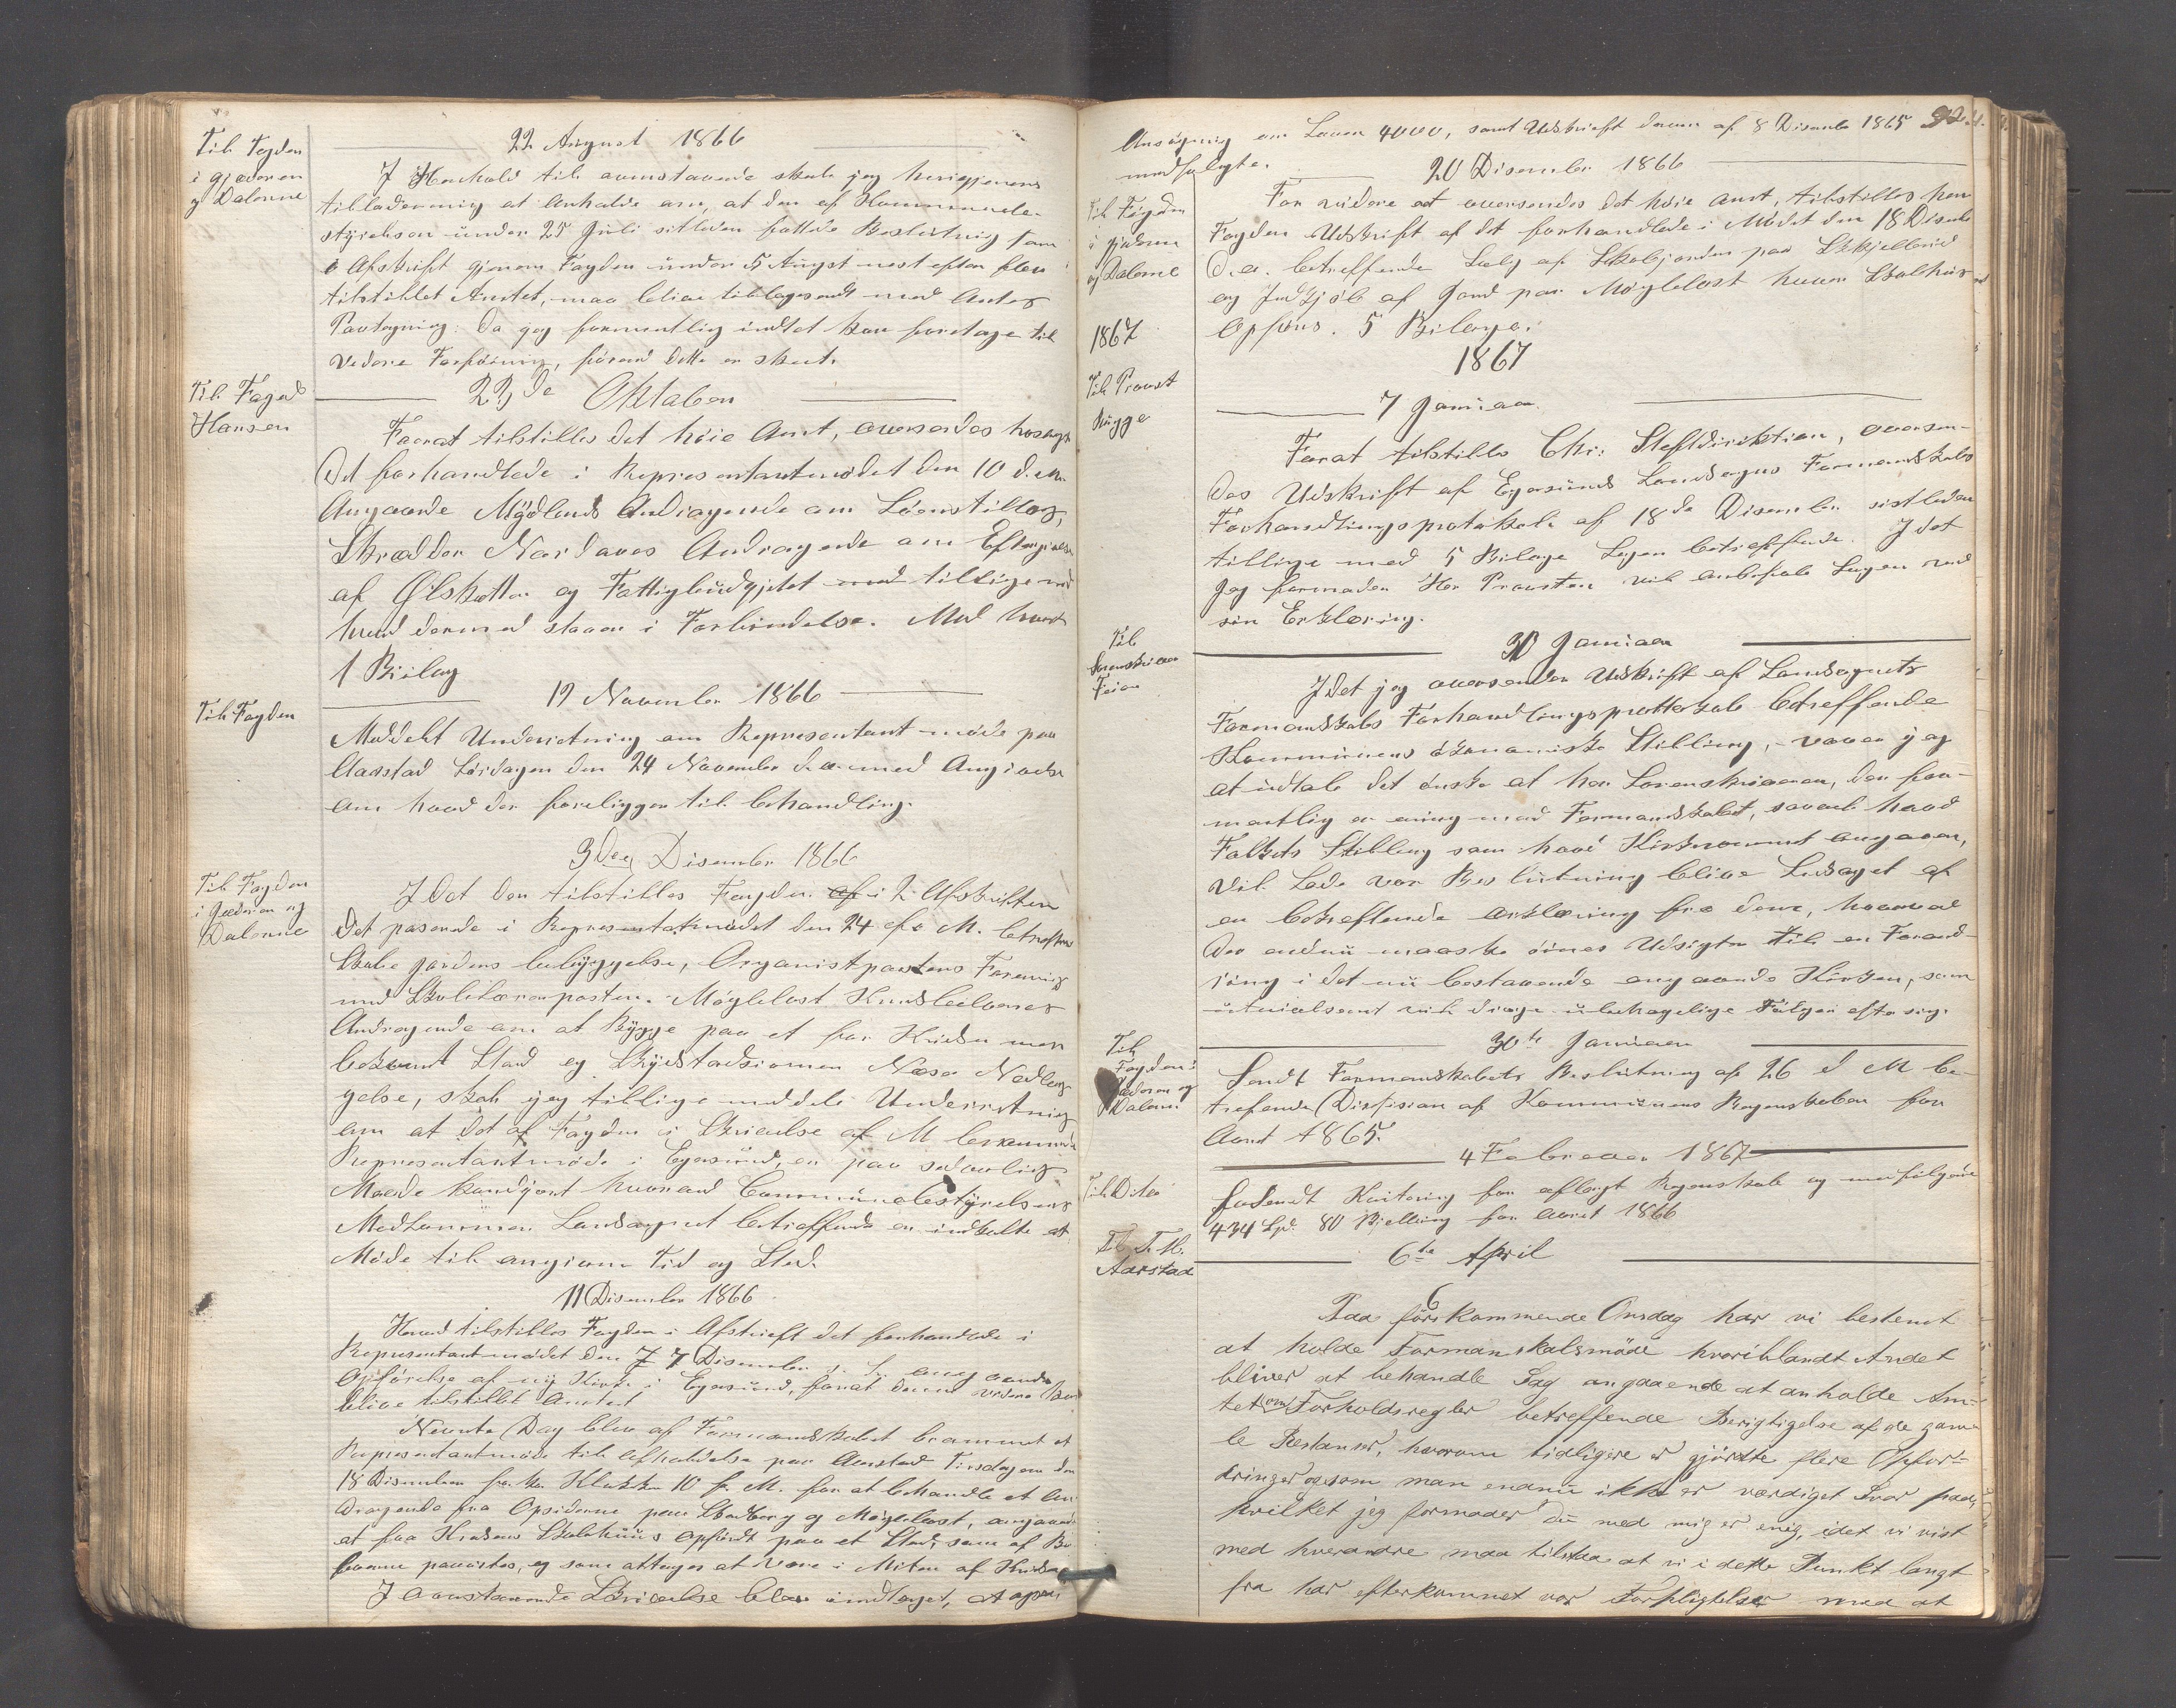 Til Fogden
i Gjæderen
og Dalerne
22 August 1866
I Henhold til ovenstaaende skule jeg herigjenem
tilladermig at Anholde om, at den af Kommunebe-
styrelsen under 25 Juli sitleden fattede Beslutning som
i Afskrift gjenem Fogden under 5 August nest efter blev
tilstillet Amtet, maa blive tilbagesendt med Amtes
Paategning. Da jeg formentlig indtet kan foretage til
videre Forføining, førend dette er skeet.
Til Foged
Hansen
23de Oktober
Forat tilstilles det høie Amt, oversendes hosagt
Det forhandlede i Representantmødet den 10 d.M.
Angaaende Mydlands Andragende om Løenstillæg,
Skrædder Nordaves Andragende om Eftergivelse
af Ølskatten og Fattigbudgjetet med tillige med
hvad dermed staaer i Forbindelse. Med hvert
1 Bilag
Til Fogden
19 November 1866
Meddelt Underretning om Representant-møde paa
Aarstad Lørdagen den 24 November d.a. med Angivelse
om hvad der foreligger til behandling.
3die Disember 1866
Til Fogden
i Gjæderen og
Dalerne
Idet der tilstilles Fogden af i 2 Afskrifter
Det paserede i Representantmødet den 24 f. M. betreffende
Skole jordens bebyggelse, Organistpostens Forening
med Skolelærerposten. Møglebost Kredsbeboeres
Andragende om at Bygge paa et for Kredsen mer
bekvemt Sted og Skydsstasionen Nese Nedleg-
gelse, skal jeg tillige meddele Underretning
om at det af Fogden i Skrivelse af M berammede
Representantmøde i Egersund, er paa sedvanlig
Maade kundgjort hvorved Communebestyrelsens
Medlemmer Landsognet betreffende er indkalte at
Møde til angivne Tid og Sted.
11 Disember 1866
Herved tilstilles Fogden i Afskrift det forhandlede i
Representantmødet den 7 Disember angaaende
Opførelse af ny Kirke i Egersund, forat derved videre kan
blive tilstillet Amtet
Nevnte Dag blev af Formandskabet berammet et
Representantmøde til Afholdelse paa Aarstad Tirsdagen den
18 Disember Klokken 10 f. M. for at behandle et An-
dragende fra Opsiderne paa Skadberg og Møglebost, angaaende
at faa Kredsens Skolehuus opført paa et Sted, som af Be-
boerne paavistes, og som attages at være i Miten af Kredsen
I ovenstaaende Skrivelse blev indtaget, at
Ansøgning om Laan 4000, samt Udskrift derom af 8 Disember 1865
medfølgte.
20 Disember 1866
Til Fogden
i gjæderen
og Dalerne
For videre at oversendes det høie Amt, tilstilles her
Fogden Udskrift af det forhandlede i Mødet den 18 Disember
d.a. betreffende Salg af Skolejorden paa Skjelbred
og Indkjøb af Jord paa Møglebost hvor Skolhus
Opføres. 5 Bilage.
1867
1867
Til Provst
Bugge
7 Januar
Forat tilstilles Chr: Stiftdirektion, oversen-
des Udskrift af Egersunds Landsogns Formandskabs
Forhandlingsprotokol af 18de Disember sistleden
tillige med 5 Bilage Sagen betreffende. I det
Jeg formoder Her Provsten vil anbefale Sagen ved
sin Erklæring.
Til
Sorenskriver
Feier
30 Januar
I det jeg oversender Udskrift af Landsognets
Formandskabs Forhandlingsprottokol betreffende
Kommunens økonomiske Stilling, vover jeg
at udtale det ønske at her Sorenskriveren, der for-
mentlig er enig med Formandskabet, saavel hvad
Falkets Stilling som hvad Kirkvesenet angaaer,
vil lade vor Beslutning blive Ledsaget af
en bekreftende Erklæring fra dem, hvorved
Der endnu maaske øines Udsigter til en Forand-
ring i det nu bestaaende angaaende Kirken, som
utvivlsomt vil drage ubehagelige Følger efter sig.
Til
Fogden i
Gjæderen og
Dalerne
30te Januar
Sendt Formandskabets Beslutning af 26 d M be-
trefende Desision af Kommunens Regenskaber for
Aaret 1865.
4 Februar 1867
Til Dito
Indsendt Kvitering for aflagt Regenskab og medfølgende
434 Spd. 80 Skelling for Aaret 1866
6te April
Til T. M.
Aarstad
Paa førstkommende Onsdag har vi bestemt
at holde Formanskabsmøde hvoriblandt Andet
bliver at behandle Sag angaaende at anholde Am-
tet om Forholdsregler betreffende Berigtigelse af de gam-
le Restanser, hvorom tidligere er gjordte flere Opfor-
dringer og som man endnu ikke er værdiget Svar paa,
hvilket jeg formoder du med mig er enig, idet vi vist
med hverandre maa tilstaa at vi i dette Punkt langt
fra har efterkommet vor Forpligtelser med at